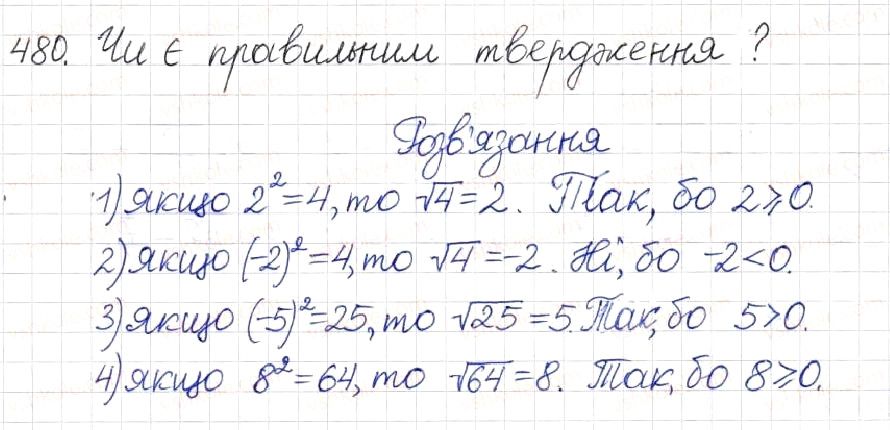 480. Чи є правильним твердження ?
Розв'язання
1) якщо 2² = 4, то √4 = 2. Так, бо 2 ⩾ 0.
2) якщо (-2)² = 4, то √4 = -2. Ні, бо -2 < 0.
3) якщо (-5)² = 25, то √25 = 5. Так, бо 5 > 0.
4) якщо 8² = 64, то √64 = 8. Так, бо 8 ⩾ 0.